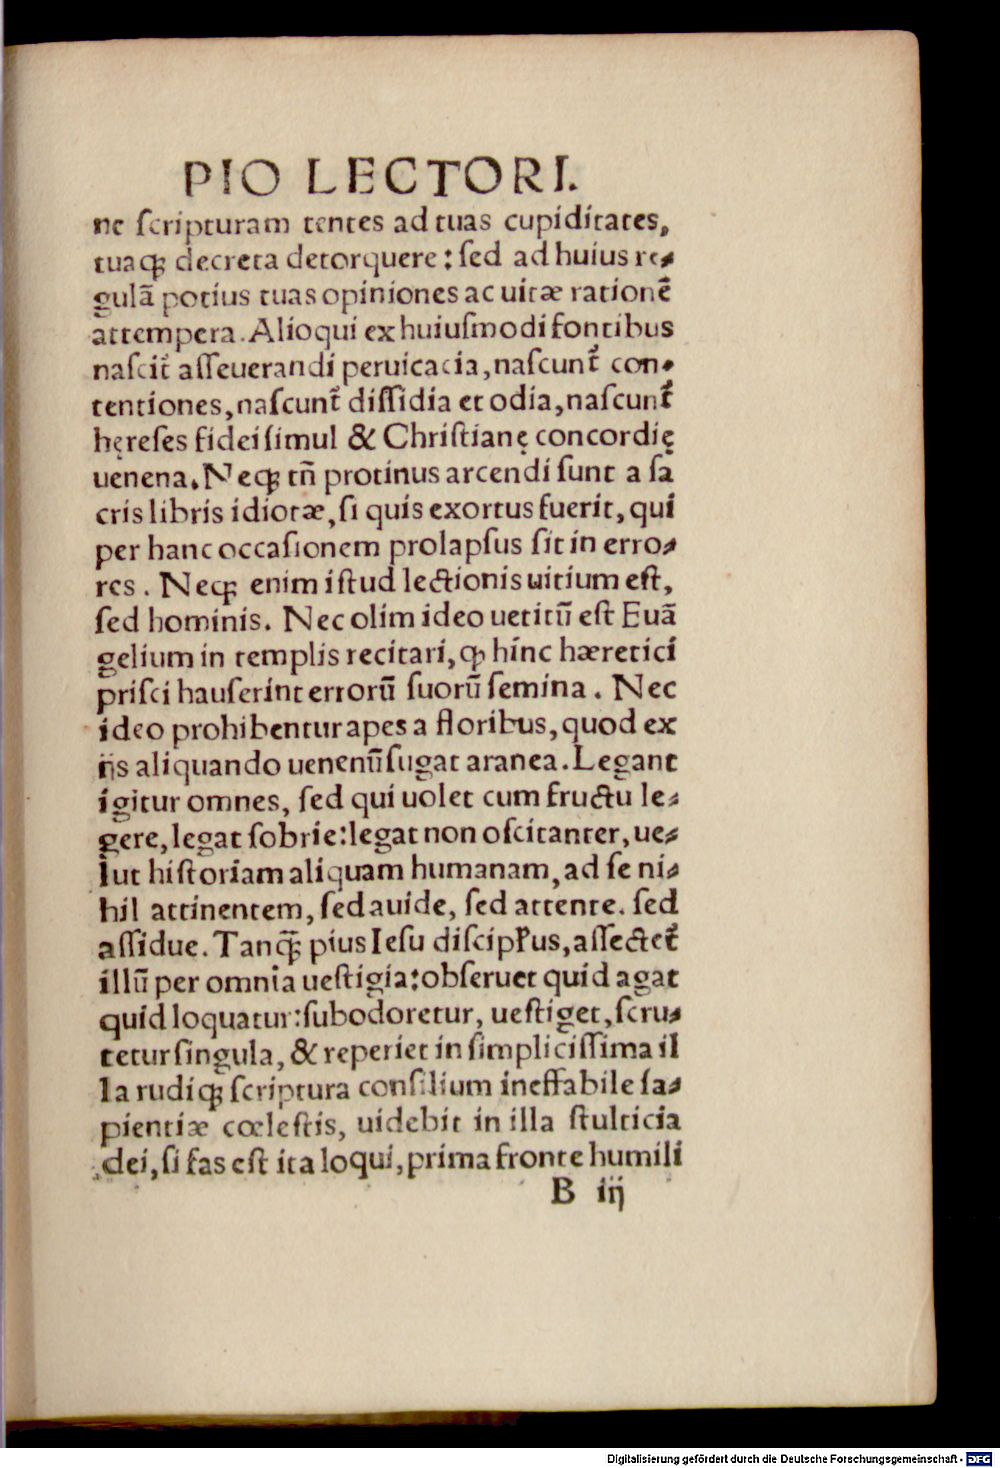 PIO LECTORI.
ne ſcripturam tentes ad tuas cupiditates,
tuaq́ꝫ decreta detorquere: ſed ad huius re⸗
gulã potius tuas opiniones ac uitæ rationẽ
attempera. Alioqui ex huiuſmodi fontibus
naſcit᷑ aſſeuerandi peruicacia, naſcunt᷑ con⸗
tentiones, naſcunt᷑ diſſidia et odia, naſcunt᷑
hęreſes fidei ſimul & Chriſtianę concordię
uenena. Neqꝫ tñ protinus arcendi ſunt a ſa
cris libris idiotæ, ſi quis exortus fuerit, qui
per hanc occaſionem prolapſus ſit in erro⸗
res. Neqꝫ enim iſtud lectionis uitium eſt,
ſed hominis. Nec olim ideo uetitũ eſt Euã
gelium in templis recitari, ꝙ hinc hæretici
priſci hauſerint errorũ ſuorũ ſemina. Nec
ideo prohibentur apes a floribus, quod ex
ijs aliquando uenenũ ſugat aranea. Legant
igitur omnes, ſed qui uolet cum fructu le⸗
gere, legat ſobrie: legat non oſcitanter, ue⸗
lut hiſtoriam aliquam humanam, ad ſe ni⸗
hil attinentem, ſed auide, ſed attente. ſed
aſſidue. Tanꝗ̃ pius Ieſu diſcipľus, aſſectet᷑
illũ per omnia ueſtigia: obſeruet quid agat
quid loquatur: ſubodoretur, ueſtiget, ſcru⸗
tetur ſingula, & reperiet in ſimpliciſſima il
la rudiqꝫ ſcriptura conſilium ineffabile ſa⸗
pientiæ cœleſtis, uidebit in illa ſtulticia
dei, ſi fas eſt ita loqui, prima fronte humili
B iij
Digitalisierung gefördert durch die Deutsche Forschungsgemeinschaft - DFG